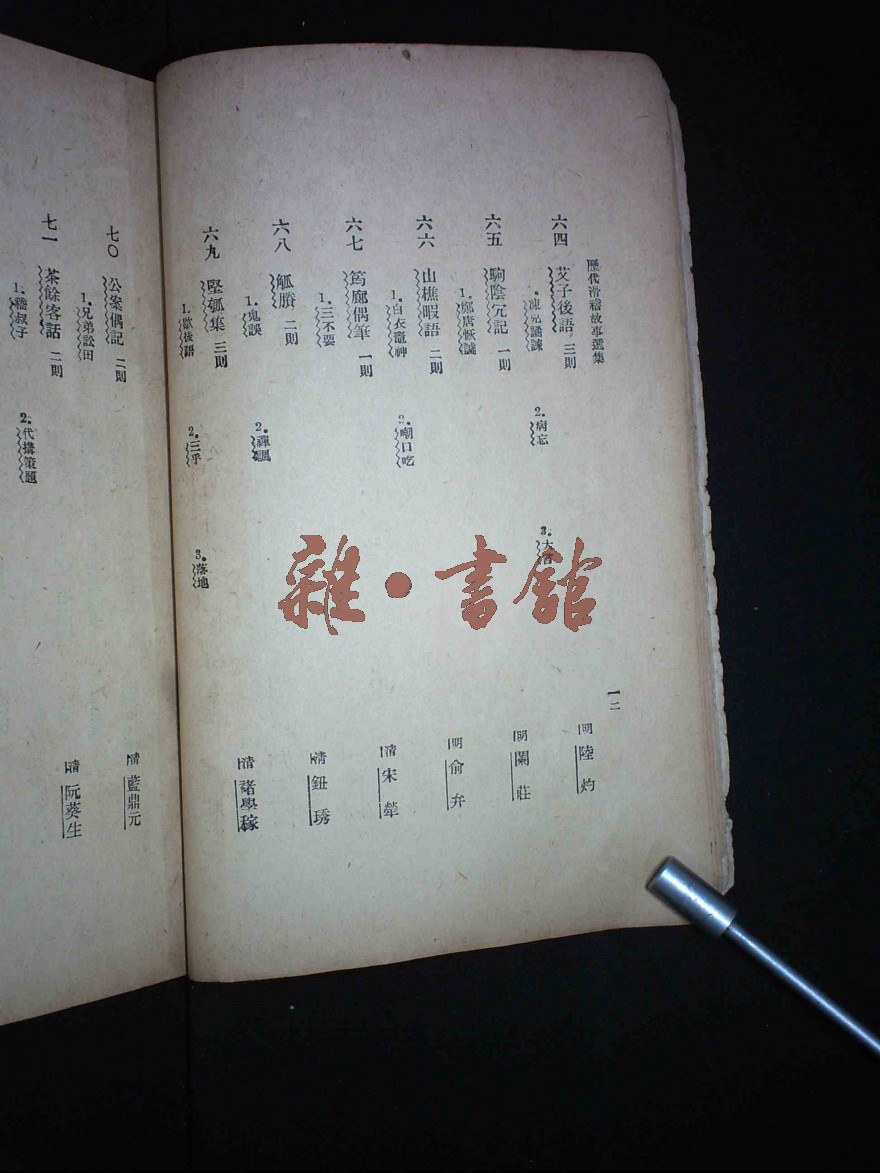 歷代滑稽故事選集
一二
六四 艾子後語 三則 明 陸灼
1.凍兒譎諫 2.病忘
六五 駒陰冗記 一則 明 闌莊
1.鄭唐恢謔
六六 山樵暇語 二則 明 俞弁
1.白衣竈神 2.嘲口吃
六七 筠廊偶筆 一則 清 宋犖
1.三不要
六八 觚賸 二則 清 鈕琇
1.鬼誤 2.禪諷
六九 堅瓠集 三則 清 褚學稼
1.歇後語 2.三乎 3.落地
七〇 公案偶記 二則 清 藍鼎元
1.兄弟訟田
七一 茶餘客話 二則 清 阮葵生
1.嵇叔子 2.代搆策題
雜·書館